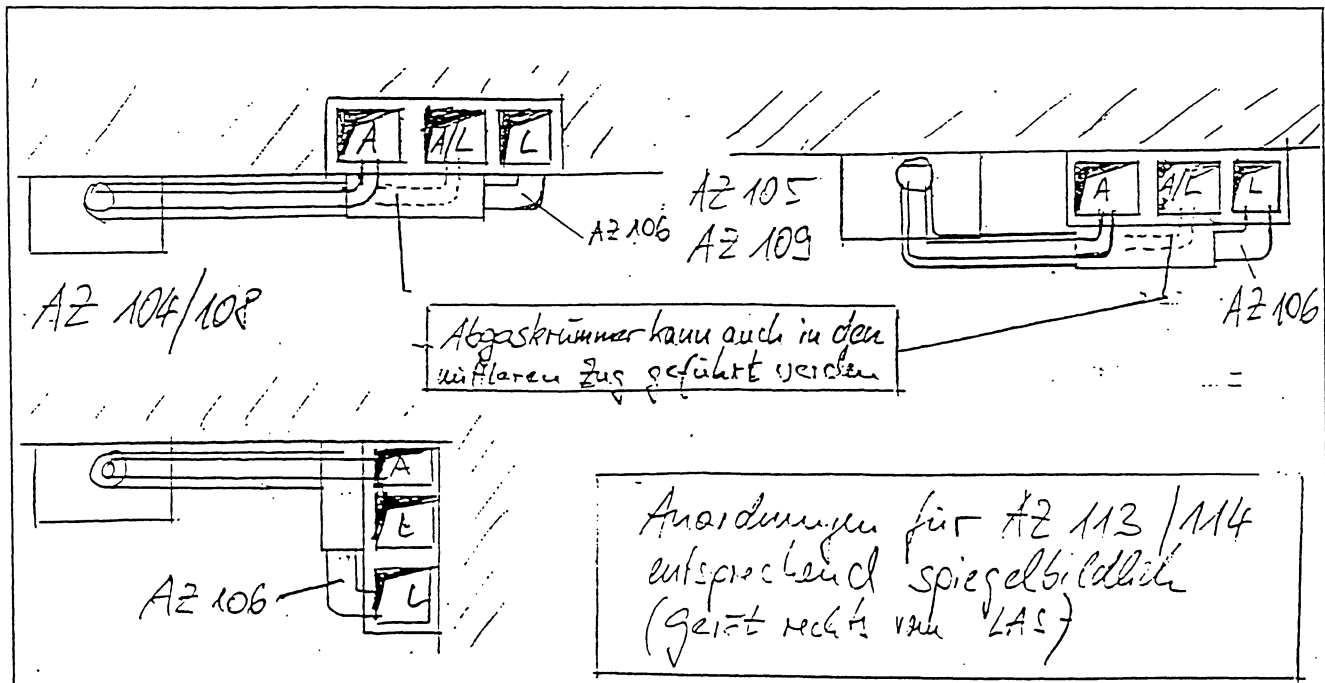 A
A/L
L
AZ 106
AZ 104/108
AZ 105
AZ 109
A
A/L
L
AZ 106
Abgaskrümmer kann auch in den
mittleren Zug geführt werden
A
L
L
AZ 106
Anordnungen für AZ 113/114
entsprechend spiegelbildlich
(Gerät rechts vom LAS)